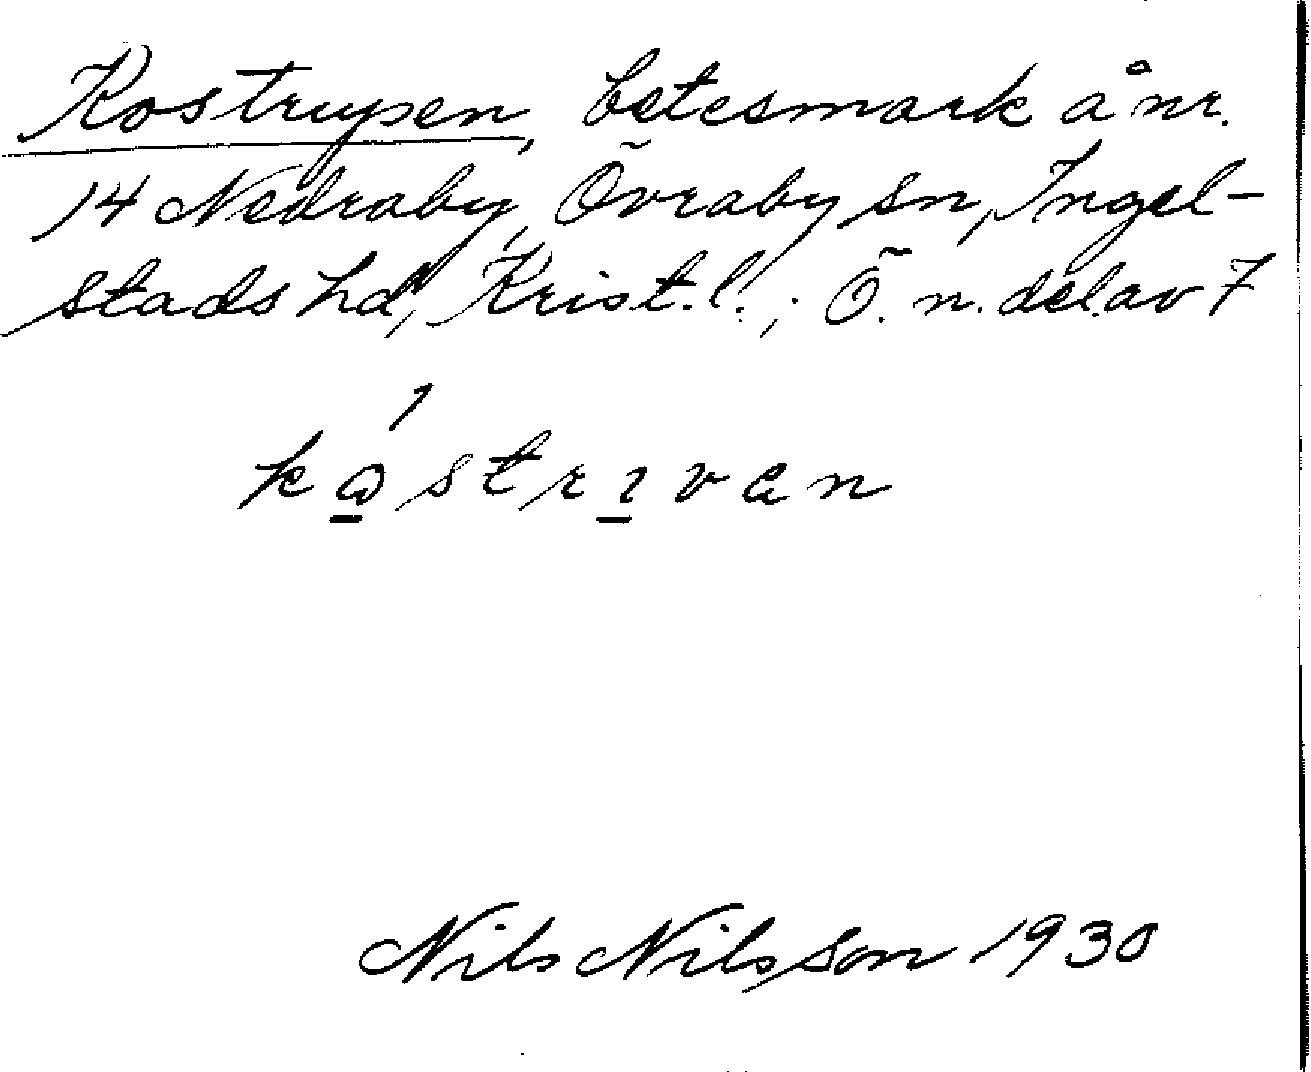 Kostrupen, betesmark å nr.
14 Nedraby, Övraby sn, Ingel-
stads hd, Krist. l.; Ö. n. del. av 7
Nils Nilsson 1930